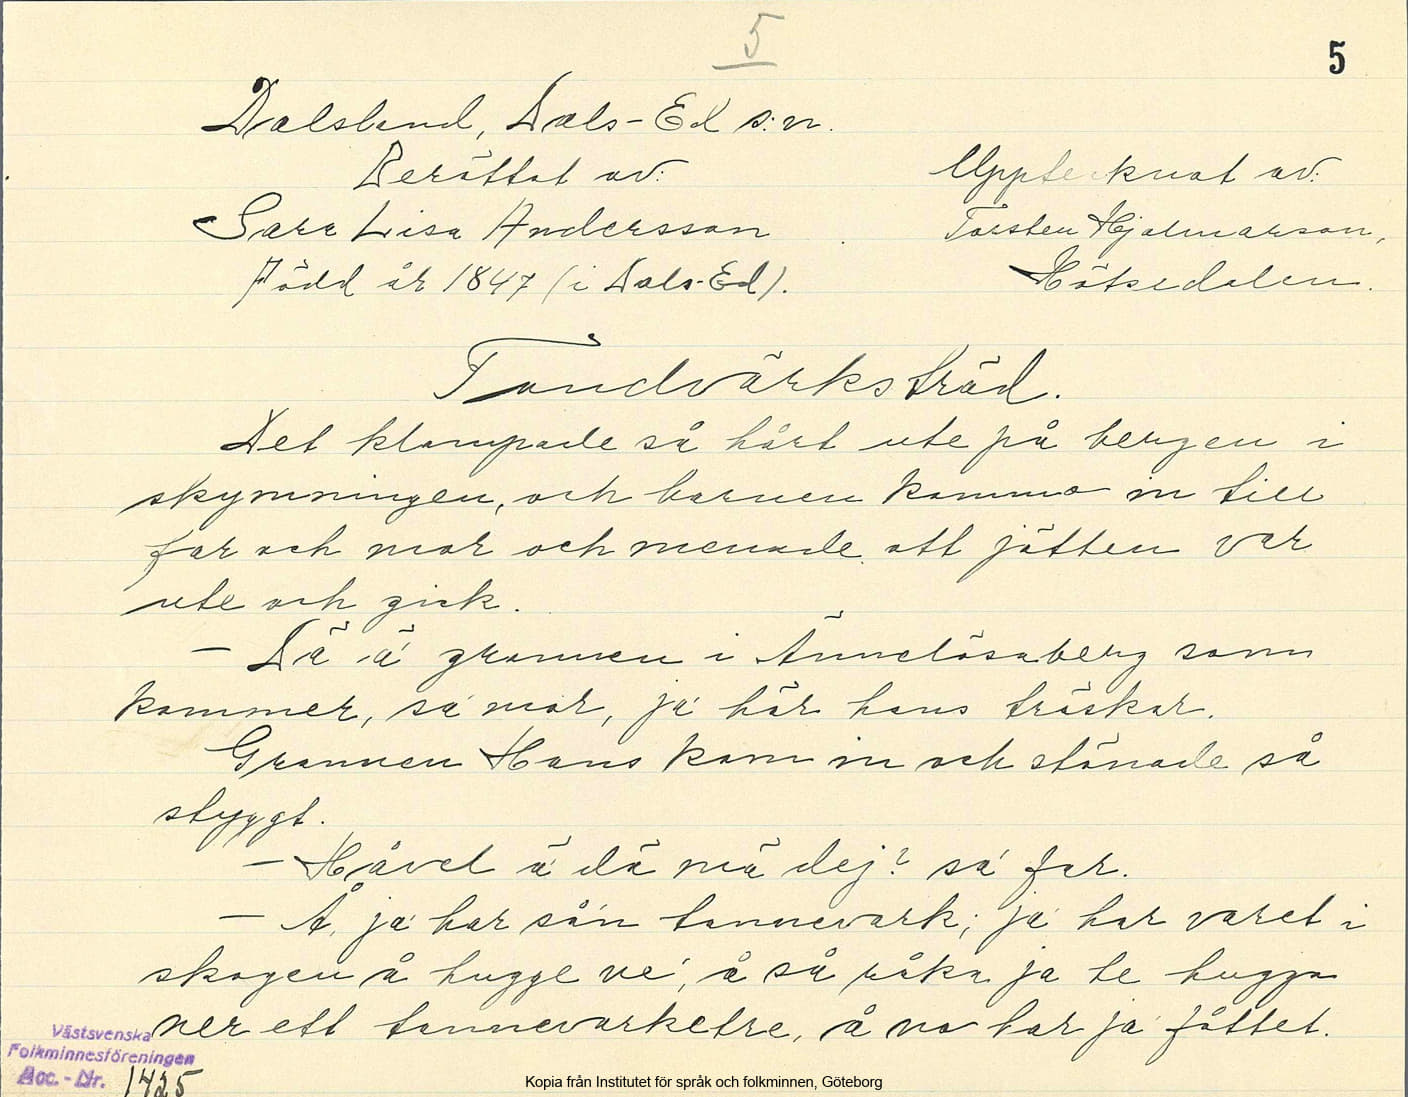 5
5
Dalsland, Dals-Ed s:n.
Berättat av:
Upptecknat av:
Sara Lisa Andersson
Torsten Hjalmarson,
Född år 1847 (i Dals-Ed).
Hötsedalen.
Tandvärksträd.
Det klampade så hårt ute på bergen i
skymningen, och barnen kommo in till
far och mor och menade att jätten var
ute och gick.
- Dä ä' grannen i Ännelösaberg som
kommer, sa' mor, ja' hör hans träskor.
Grannen Hans kom in och stönade så
styggt.
- Håvel ä' dä mä dej? sa' far.
- Å, ja' har sån tannevark; ja' har varet i
skogen å hugge ve', å så råka ja te hugga
ner ett tannevarketre, å na har ja' fåttet.
Västsvenska
Folkminnesföreningen
Acc. - Nr. 1425
Kopia från Institutet för språk och folkminnen, Göteborg